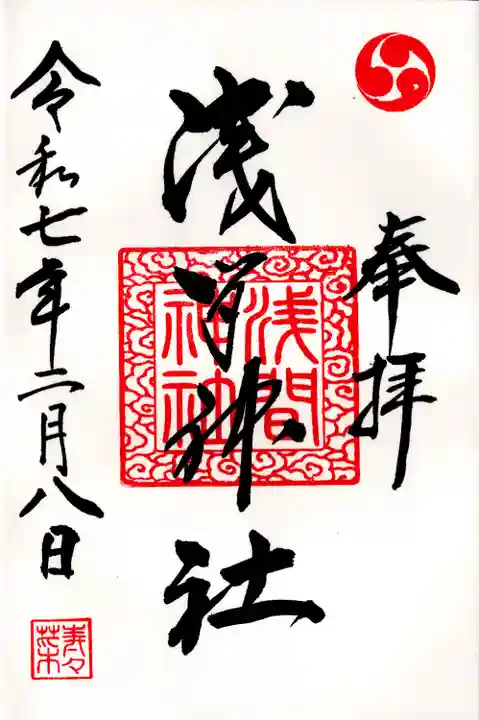 奉拝
浅間神社
浅間
神社
令和七年二月八日